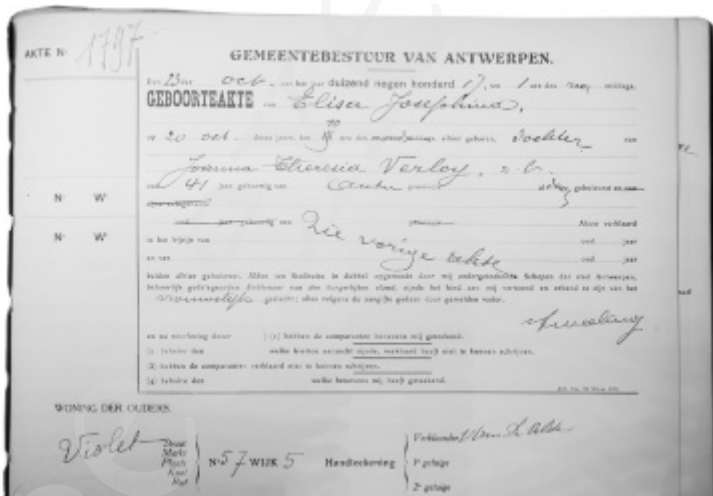 AKTE Nr 1797
GEMEENTEBESTUUR VAN ANTWERPEN.
Den 23 oct. van het jaar duizend negen honderd 17, ten 1 ure des middags.
GEBOORTEAKTE van Elisa Josephina,
20 oct. dezes jaars, ten ure des middags, alhier geboren, dochter van
Joanna Theresia Verloy, z. b.
oud 41 jaar, geboortig van alhier gehuisvest
Nr W
Aldus verklaard
Zie vorige akte
Nr W
in het bijzijn van oud jaar
en van oud jaar
beiden alhier gehuisvest. Aldus ten Stadhuize in dubbel opgemaakt door mij ondergeteekende Schepen der stad Antwerpen,
behoorlijk gedelegeerden Ambtenaar van den burgerlijken stand, zijnde het kind aan mij vertoond en erkend te zijn van het
vrouwelijk geslacht; alles volgens de aangifte gedaan door gemelden vader.
en na voorlezing dezer (1) hebben de comparanten benevens mij geteekend.
(2) behalve den welke hierten verzocht zijnde, verklaard heeft niet te kunnen schrijven.
(3) hebben de comparanten verklaard niet te kunnen schrijven.
(4) behalve den welke benevens mij heeft geteekend.
WONING DER OUDERS.
Violet Straat Markt Plaats Kaai Rui
Nr 57 WIJK 5 Handteekening
Verklaarder
1e getuige
2e getuige